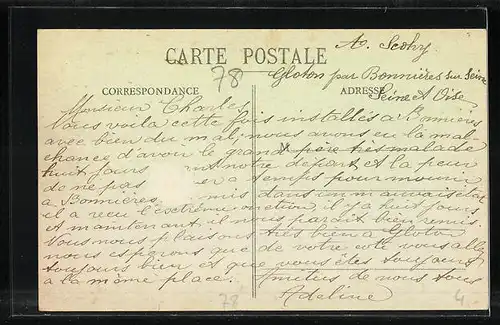 A. Scohy
CARTE POSTALE
78
Gloton par Bonnières sur Seine
CORRESPONDANCE
ADRESSE
Seine et Oise
Monsieur Charles
Nous voila cette fois installés a Bonnières
avec bien du mal; nous avons eu la mal-
chance d'avoir le grand père très malade
huit jours notre départ et la peur
de ne pas a temps pour mourir
a Bonnières mis dans un mauvais état
il a reçu l'extrême onction il y a huit jours
et maintenant il nous parait bien remis.
Nous nous plaisons très bien a Gloton
nous esperons que de votre coté vous allez
toujours bien et que vous êtes toujours
a la même place. Amitiés de nous tous
Adeline
78
4.-